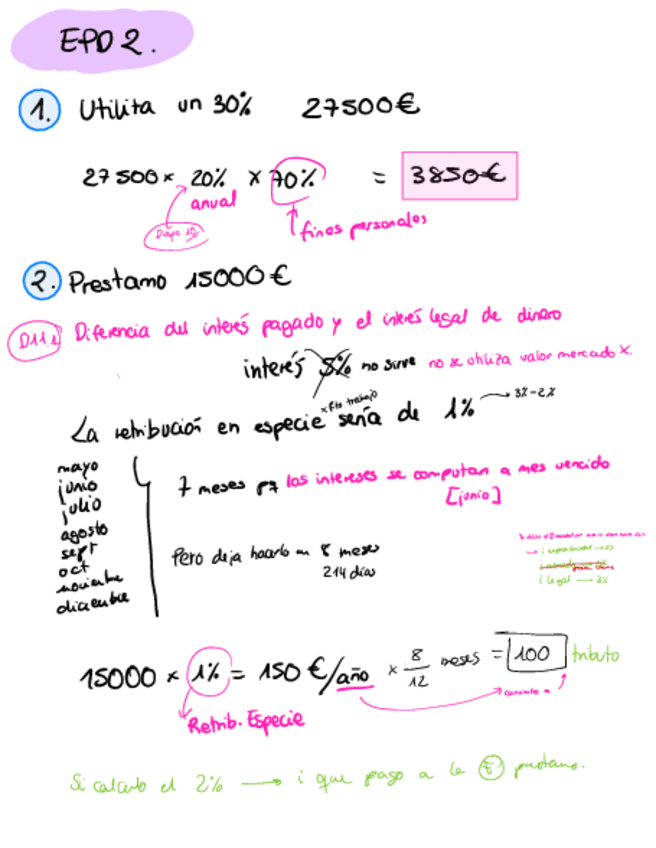 EPD 2.
1. Utilita un 30% 27500€
27500 × 20% × 70% = 3850€
anual
fines personales
2. Prestamo 15000€
Diferencia del interés pagado y el interés legal de dinero
interés 5% no sirve no se utiliza valor mercado X.
x Fto trabajo
La retribución en especie sería de 1% → 3%-2%
mayo
junio
julio
agosto
sept
oct
noviembre
diciembre
7 meses pq los intereses se computan a mes vencido
[junio]
Pero deja hacerlo en 8 meses
214 días
i legal → 3%
15000 × 1% = 150 €/año × 8/12 meses = 100 tributo
Retrib. Especie
Si calculo el 2% → i que pago a la prestamo.